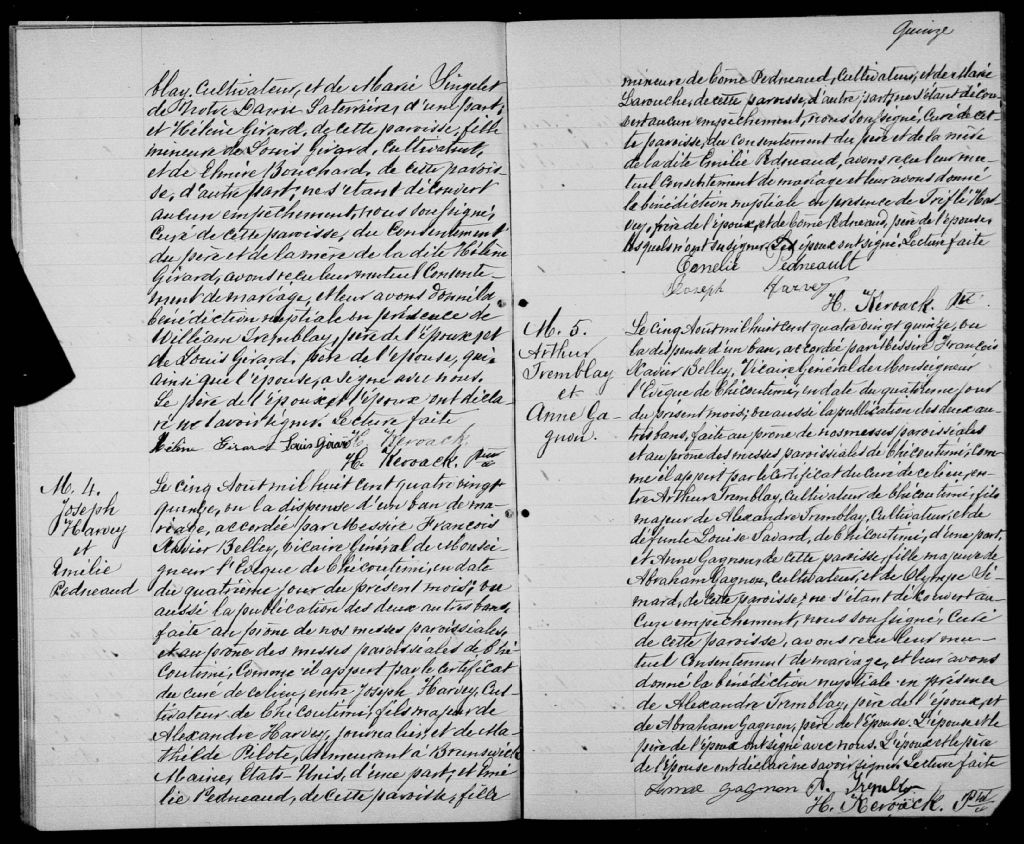 blay, Cultivateur, et de Marie Singelet
de Notre Dame Laterrière, d'une part,
et Hélène Girard, de cette paroisse, fille
mineure de Louis Girard, Cultivateur,
et de Elmire Bouchard, de cette parois-
se, d'autre part; ne s'étant découvert
aucun empêchement, nous soussigné,
curé de cette paroisse, du Consentement
du père et de la mère de la dite Hélène
Girard, avons reçu leur mutuel Consente-
ment de mariage, et leur avons donné la
bénédiction nuptiale en présence de
William Tremblay, père de l'époux, et
de Louis Girard, père de l'épouse, qui
ainsi que l'épouse, a signé avec nous.
Le père de l'époux et l'époux ont décla-
ré ne savoir signer. Lecture faite
Hélène Girard Louis Girard H. Kéroack
H. Kéroack. Ptre
M. 4.
Joseph
Harvey
et
Emélie
Pedneaud
Le cinq Août mil huit cent quatre vingt
quinze, vu la dispense d'un ban de ma-
riage, accordée par Messire François
Xavier Belley, Vicaire Général de Monsei-
gneur l'Evêque de Chicoutimi, en date
du quatrième jour du présent mois; vu
aussi la publication des deux autres bans,
faite au prône de nos messes paroissiales,
et au prône des messes paroissiales de Chi-
coutimi, Comme il appert par le certificat
du curé de ce lieu, entre Joseph Harvey, Cul-
tivateur de Chicoutimi, fils majeur de
Alexandre Harvey, journalier, et de Ma-
thilde Pilote, demeurant à Brunswick
Maine, Etats-Unis, d'une part; et Emé
lie Pedneaud, de cette paroisse, fille
Quinze
mineure de Côme Pedneaud, Cultivateur, et de Marie
Larouche, de cette paroisse, d'autre part; ne s'étant décou-
vert aucun empêchement, nous soussigné, Curé de cet-
te paroisse, du Consentement du père et de la mère
de la dite Emélie Pedneaud, avons reçu leur mu-
tuel Consentement de mariage et leur avons donné
la bénédiction nuptiale en présence de Trifflé Har-
vey, frère de l'époux, et de Côme Pedneaud, père de l'épouse,
lesquels n'ont su signer. Les époux ont signé. Lecture faite
Emélie Pedneault
Joseph Harvey
H. Kéroack. Ptre
M. 5.
Arthur
Tremblay
et
Anne Ga-
gnon.
Le cinq Août mil huit cent quatre vingt quinze, vu
la dispense d'un ban, accordée par Messire François
Xavier Belley, Vicaire Général de Monseigneur
l'Evêque de Chicoutimi, en date du quatrième jour
du présent mois; vu aussi la publication des deux au-
tres bans, faite au prône de nos messes paroissiales
et au prône des messes paroissiales de Chicoutimi, com-
me il appert par le Certificat du Curé de ce lieu, en-
tre Arthur Tremblay, Cultivateur de Chicoutimi, fils
majeur de Alexandre Tremblay, Cultivateur, et de
défunte Louise Savard, de Chicoutimi, d'une part,
et Anne Gagnon, de cette paroisse, fille majeure de
Abraham Gagnon, Cultivateur, et de Olympe Si-
mard, de cette paroisse; ne s'étant découvert au-
cun empêchement, nous soussigné, Curé
de cette paroisse, avons reçu leur mu-
tuel Consentement de mariage, et leur avons
donné la bénédiction nuptiale en présence
de Alexandre Tremblay, père de l'époux, et
de Abraham Gagnon, père de l'Epouse. L'épouse et le
père de l'époux ont signé avec nous. L'époux et le père
de l'épouse ont déclaré ne savoir signer. Lecture faite
Anna gagnon A.
H. Kéroack. Ptre